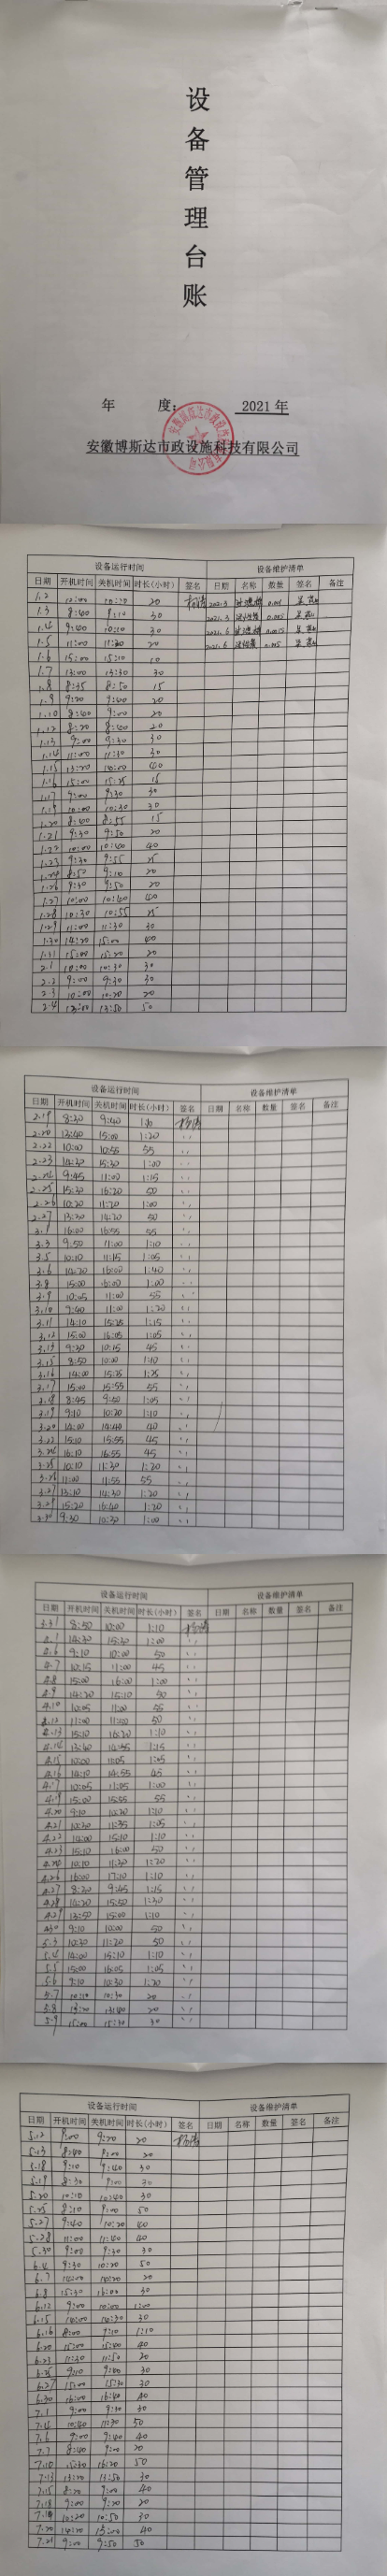 设
备
管
理
台
账
年 度: 2021 年
安徽博斯达市政设施科技有限公司
设备运行时间 设备维护清单
日期 开机时间 关机时间 时长(小时) 签名 日期 名称 数量 签名 备注
1.3 8:40 9:10 30
1.4 9:40 10:10 30
1.5 11:00 11:20 20
1.6 15:00 15:10 10
1.7 13:00 13:30 30
1.8 8:35 8:50 15
1.9 9:20 9:40 20
1.10 8:40 9:00 20
1.12 8:20 8:40 20
1.13 9:00 9:30 30
1.14 11:00 11:30 30
1.15 13:20 14:00 40
1.16 15:00 15:15 15
1.17 9:00 9:30 30
1.19 10:00 10:30 30
1.20 8:40 8:55 15
1.21 9:30 9:50 20
1.22 10:00 10:40 40
1.23 9:30 9:55 25
1.24 8:50 9:10 20
1.26 9:30 9:50 20
1.27 10:00 10:40 40
1.28 10:30 10:55 25
1.29 11:00 11:30 30
1.30 14:20 15:00 40
1.31 15:00 15:20 20
2.1 10:00 10:30 30
2.2 9:00 9:30 30
2.3 10:00 10:20 20
2.4 13:00 13:50 50
设备运行时间 设备维护清单
日期 开机时间 关机时间 时长(小时) 签名 日期 名称 数量 签名 备注
2.19 8:30 9:40
2.20 13:40 15:00 1:20
2.22 10:00 10:55 55
2.23 14:30 15:30 1:00
2.24 9:45 11:00 1:15
2.25 15:30 16:20 50
2.26 10:20 11:20 1:00
2.27 13:30 14:20 50
3.1 16:00 16:55 55
3.3 9:50 11:00 1:10
3.5 10:10 11:15 1:05
3.6 14:20 16:00 1:40
3.8 15:00 16:00 1:00
3.9 10:05 11:00 55
3.10 9:40 11:00 1:20
3.11 14:10 15:25 1:15
3.12 15:00 16:05 1:05
3.13 9:30 10:15 45
3.15 8:50 10:00 1:10
3.16 14:00 15:25 1:25
3.17 15:00 15:55 55
3.18 8:45 9:50 1:05
3.19 9:10 10:20 1:10
3.20 14:00 14:40 40
3.22 15:10 15:55 45
3.24 16:10 16:55 45
3.25 10:10 11:30 1:20
3.26 11:00 11:55 55
3.27 13:10 14:30 1:20
3.29 15:20 16:40 1:20
3.30 9:30 10:30 1:00
设备运行时间 设备维护清单
日期 开机时间 关机时间 时长(小时) 签名 日期 名称 数量 签名 备注
3.31 8:50 10:00 1:10
4.1 14:30 15:30 1:00
4.6 9:10 10:00 50
4.7 10:15 11:00 45
4.8 15:00 16:00 1:00
4.9 14:20 15:10 50
4.10 10:05 11:00 55
4.12 11:00 50
4.13 15:10 16:20 1:10
4.14 13:40 14:55 1:15
4.15 10:00 11:05 1:05
4.16 14:10 14:55 45
4.17 10:05 11:05 1:00
4.19 15:00 15:55 55
4.20 9:10 10:20 1:10
4.21 10:30 11:35 1:05
4.22 14:00 15:10 1:10
4.23 15:10 16:00 50
4.24 10:10 11:30 1:20
4.26 16:00 17:10 1:10
4.27 8:30 9:45 1:15
4.28 14:20 15:50 1:30
4.29 13:50 15:00 1:10
4.30 9:10 10:00 50
5.3 10:30 11:20 50
5.4 14:00 15:10 1:10
5.5 15:00 16:05 1:05
5.6 9:10 10:30 1:20
5.7 10:10 10:30 20
5.8 13:20 13:40 20
5.9 15:00 15:30 30
设备运行时间 设备维护清单
日期 开机时间 关机时间 时长(小时) 签名 日期 名称 数量 签名 备注
5.12 9:00 9:20 20
5.13 8:40 9:00 20
5.18 9:10 9:40 30
5.19 8:30 9:00 30
5.20 10:10 10:40 30
5.25 8:10 9:00 50
5.27 9:40 10:20 40
5.28 11:00 11:40 40
5.30 9:00 9:30 30
6.4 9:30 10:20 50
6.7 14:00 14:20 20
6.8 15:30 16:00 30
6.12 9:00 10:00 1:00
6.15 14:00 14:30 30
6.16 8:00 9:10 1:10
6.20 15:00 15:40 40
6.23 11:30 11:50 20
6.25 9:10 9:40 30
6.27 15:00 15:30 30
6.30 16:00 16:40 40
7.1 9:00 9:30 30
7.4 10:40 11:30 50
7.6 9:00 9:40 40
7.7 8:40 9:00 20
7.10 15:30 16:20 50
7.13 13:20 13:50 30
7.15 8:20 9:00 40
7.18 9:00 9:20 20
7.19 10:20 10:50 30
7.20 14:20 15:00 40
7.21 9:00 9:50 50